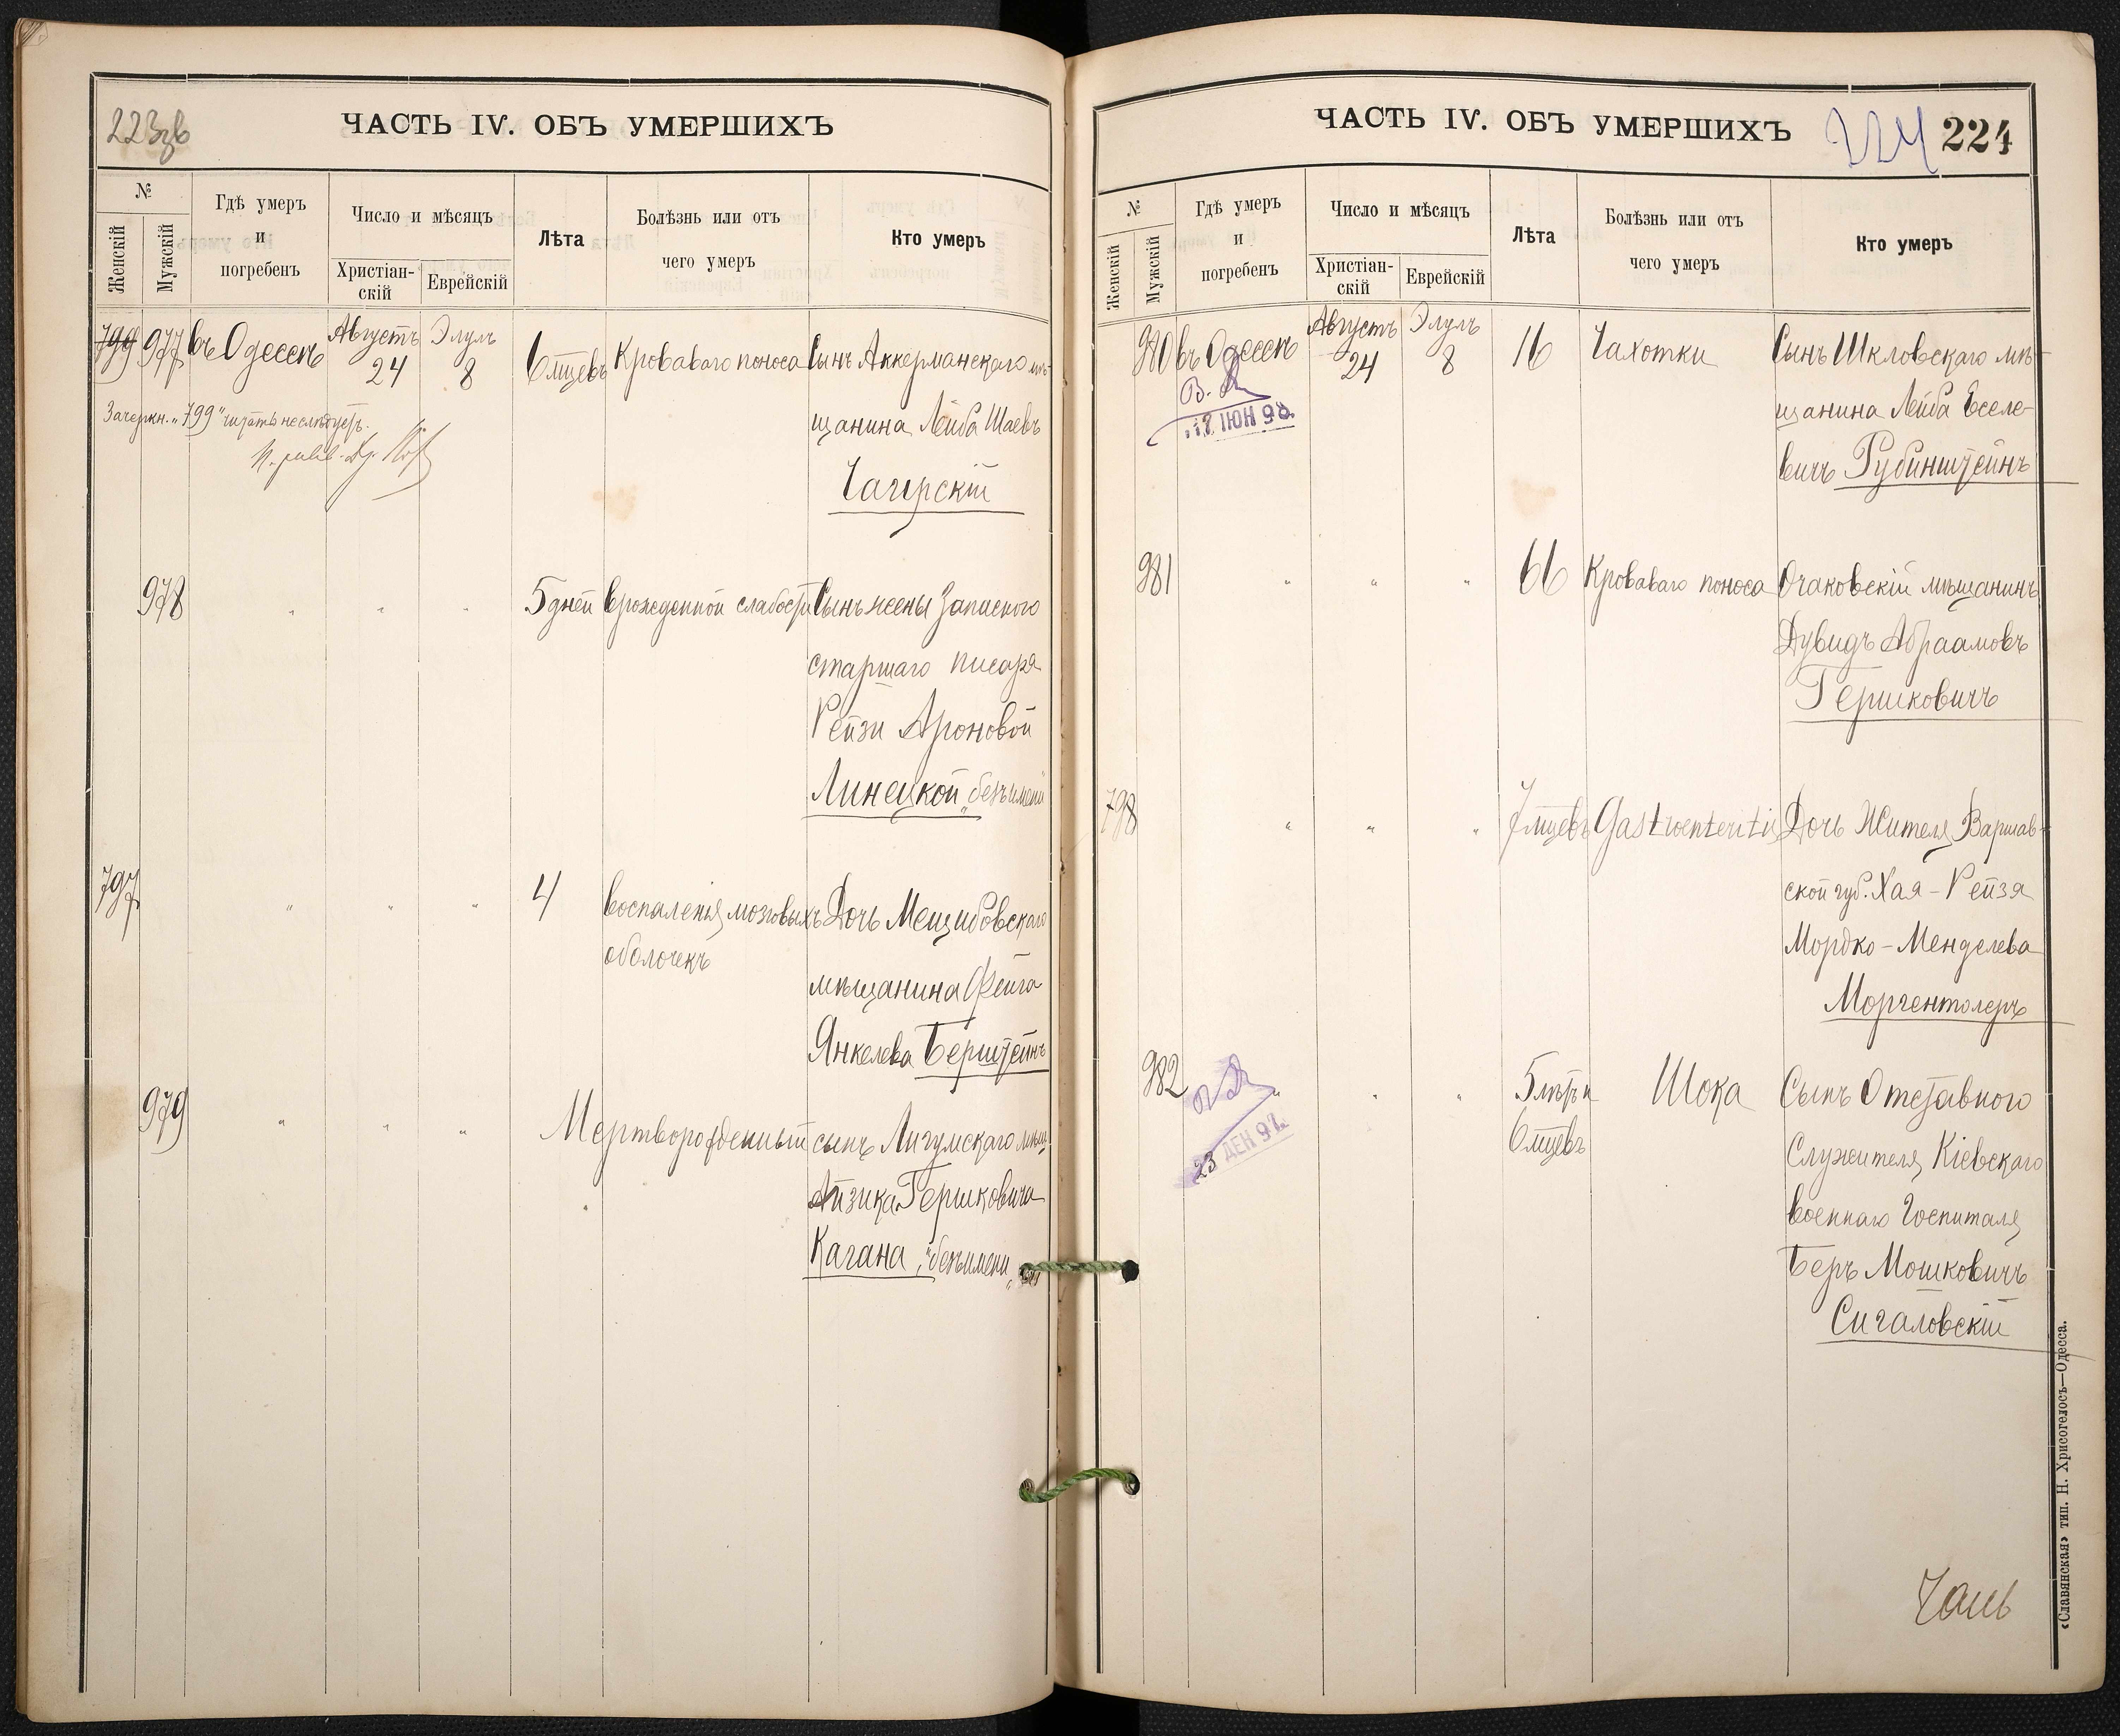 223об
ЧАСТЬ IV. ОБЪ УМЕРШИХЪ
№
Женскій
Мужскій
Гдѣ умеръ
и
погребенъ
Число и мѣсяцъ
Христіан-
скій
Еврейскій
Лѣта
Болѣзнь или отъ
чего умеръ
Кто умеръ
799 977 въ Одессѣ Августъ 24 Элулъ 8 6 мцевъ Кроваваго поноса Сынъ Аккерманскаго мѣ-
щанина Лейба Шаевъ
Чагирскій
Зачеркн. „799“ читать не слѣдуетъ.
978 " " " 5 дней врожденной слабости Сынъ жены Запаснаго
старшаго писаря
Рейзи Ароновой
Линецкой „безъ имени“
797 " " " 4 воспаленія мозговыхъ Дочь Межибовскаго
оболочекъ
мѣщанина Фейга
Янкелева Берштейнъ
979 " " " Мертворожденный сынъ Лигумскаго мѣщ.
Айзика Гершковича
Кагана, „безъ имени“
ЧАСТЬ IV. ОБЪ УМЕРШИХЪ
224 224
№
Женскій
Мужскій
Гдѣ умеръ
и
погребенъ
Число и мѣсяцъ
Христіан-
скій
Еврейскій
Лѣта
Болѣзнь или отъ
чего умеръ
Кто умеръ
980 въ Одессѣ Августъ 24 Элулъ 8 16 Чахотки Сынъ Шкловскаго мѣ-
щанина Лейба Еселе-
вичъ Рубинштейнъ
17 ІЮН 98.
981 " " " 66 Кроваваго поноса Очаковскій мѣщанинъ
Дувидъ Абраамовъ
Гершковичъ
798 " " " 7 мцевъ Gastroenteritis Дочь Жителя Варшав-
ской губ. Хая-Рейзя
Мордко-Менделева
Моргентолеръ
982 " " " 5 лѣтъ и Шока Сынъ Отставного
6 мцевъ
Служителя Кіевскаго
военнаго Госпиталя
Беръ Мошковичъ
Сигаловскій
23 ДЕК 97.
«Славянская» тип. Н. Хрисогелосъ—Одесса.